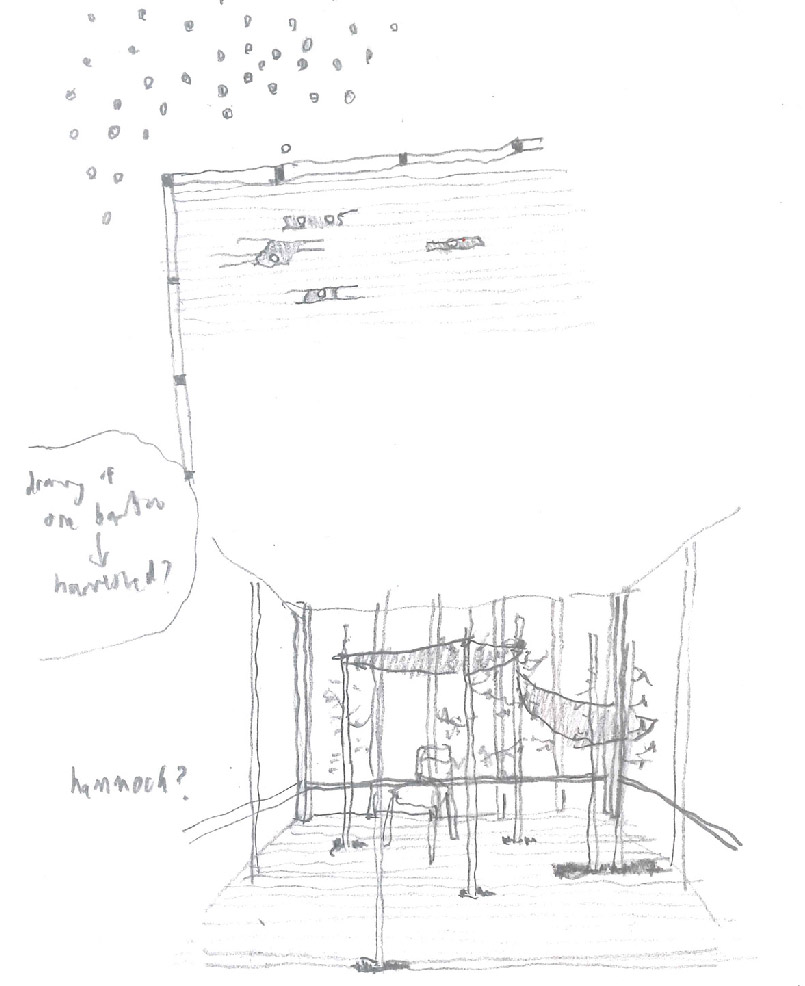 drawing if
on bamboo
harvested?
hammock?